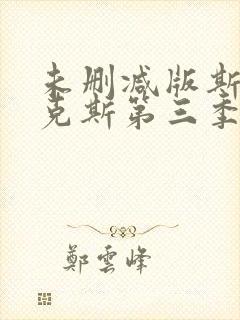 未删减版斯
克斯第三季
鄭雲峰